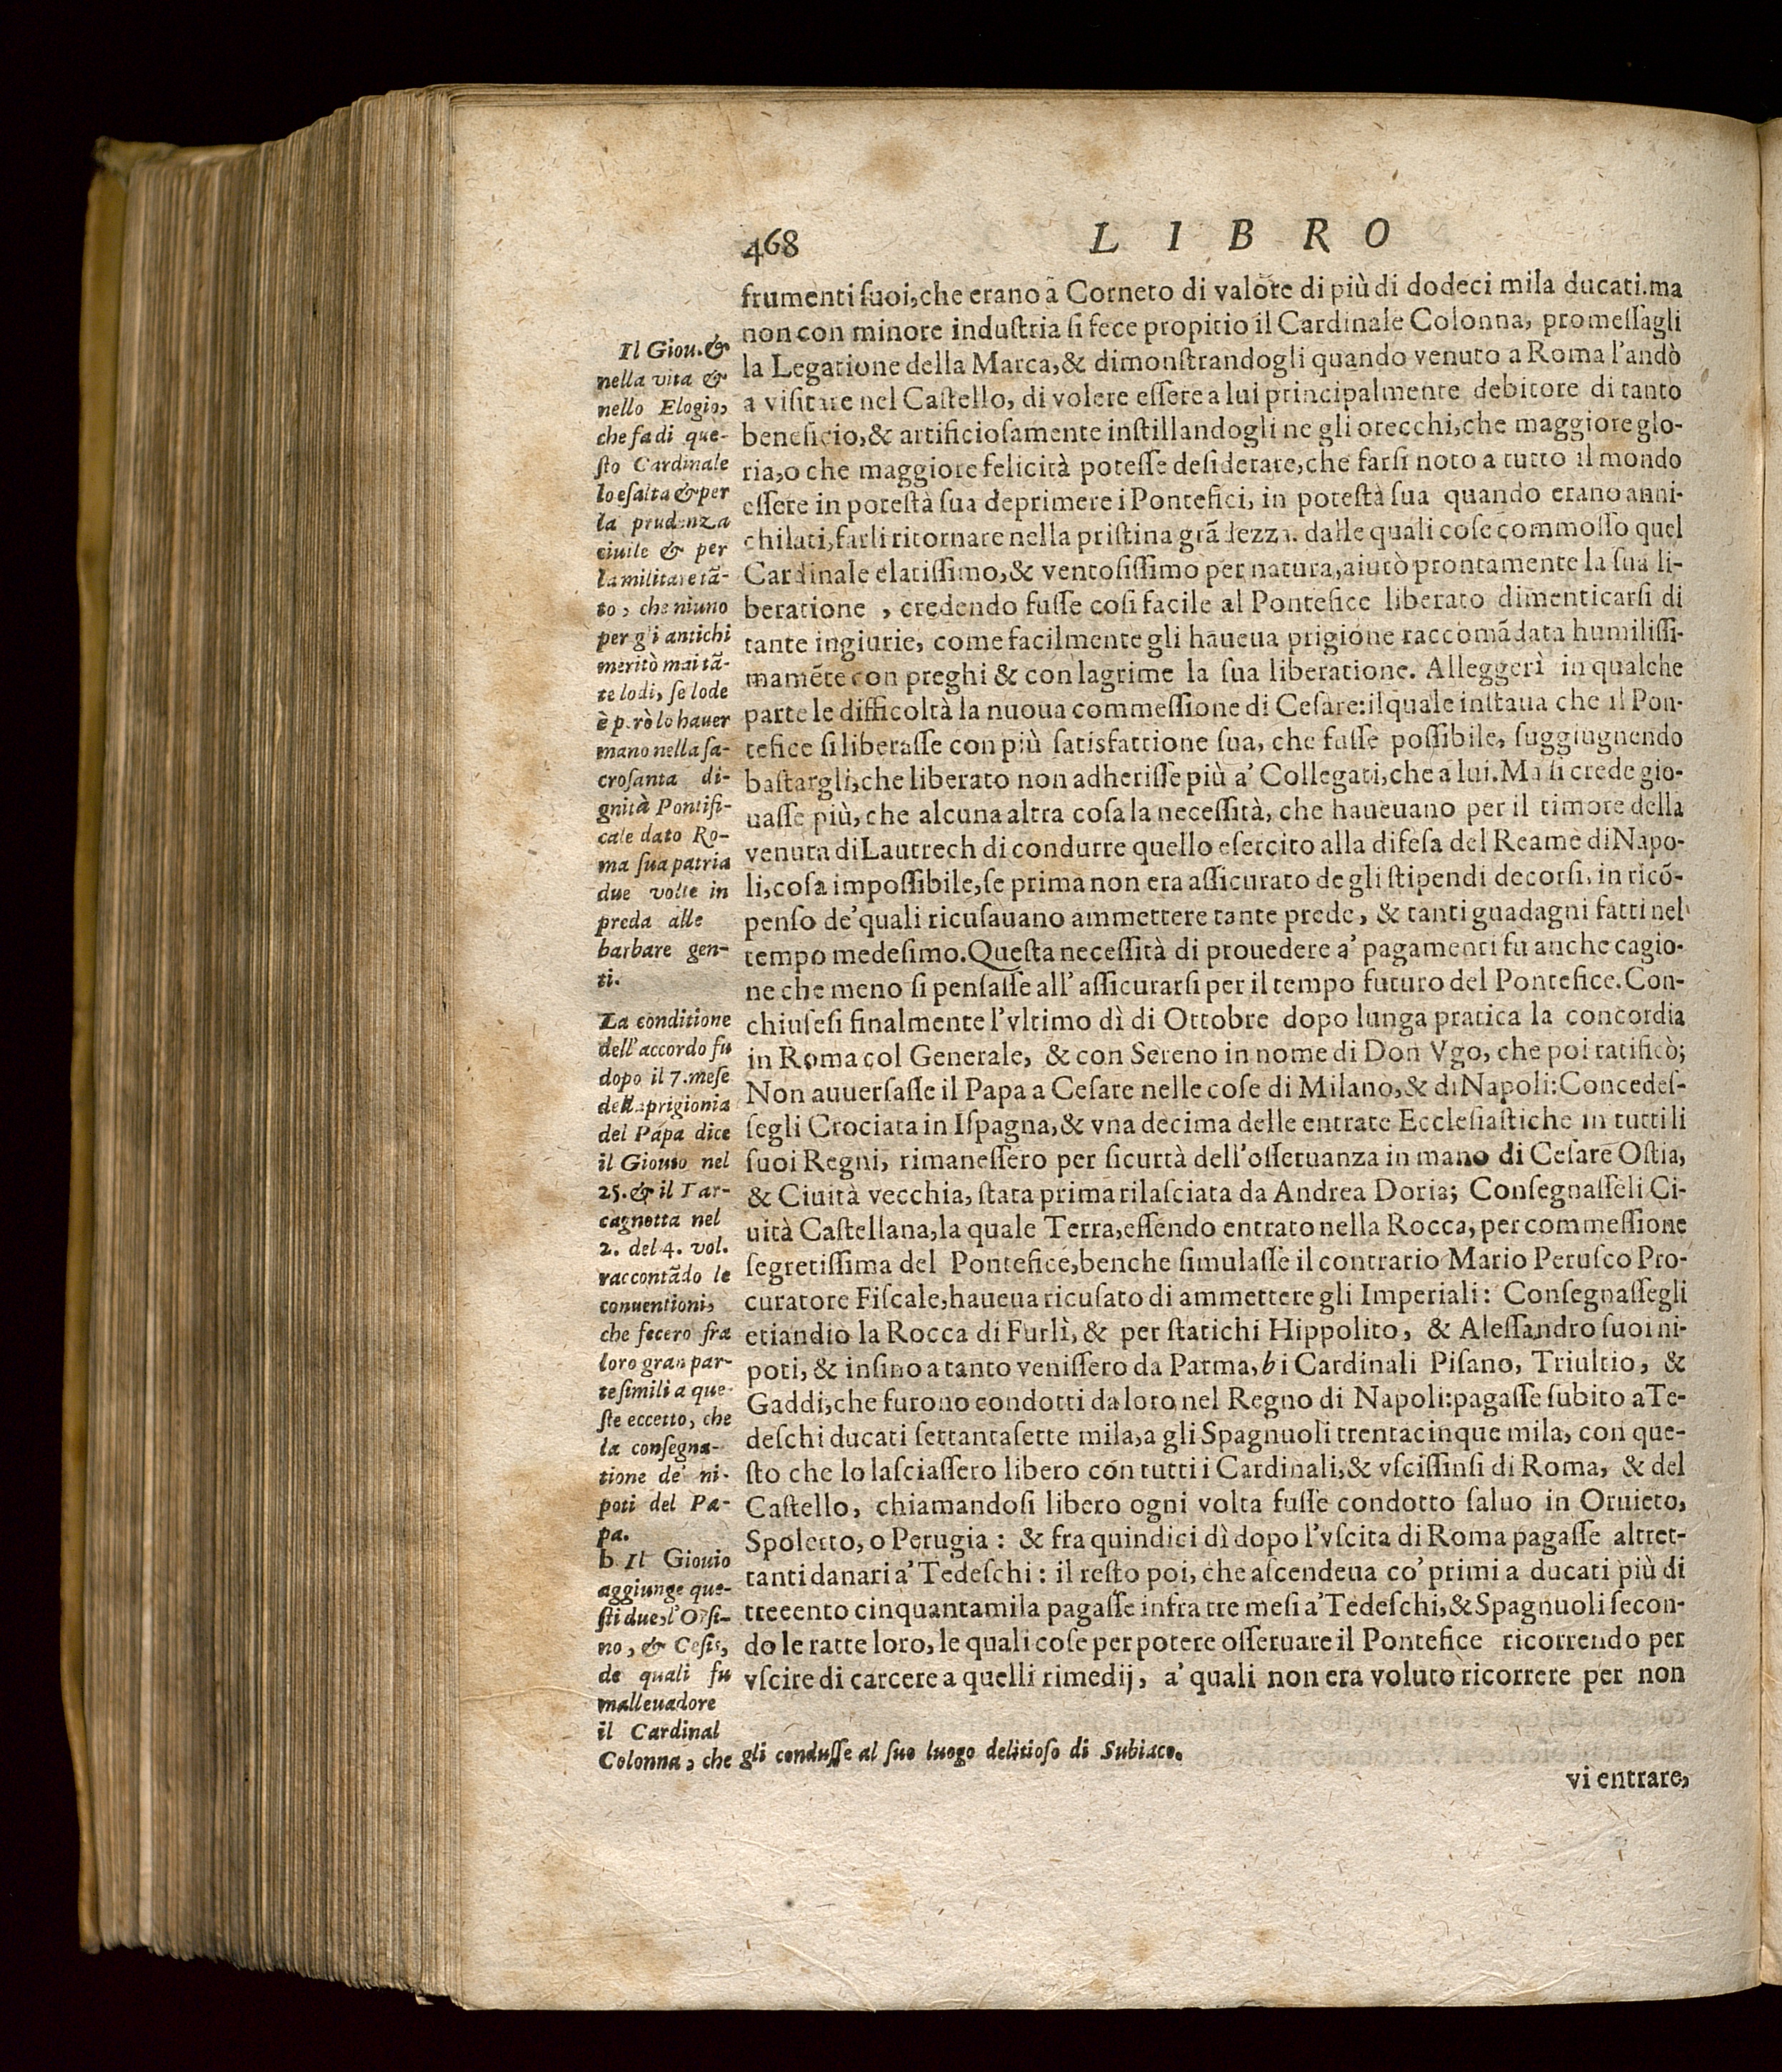 468
LIBRO
frumenti ſuoi, che erano à Corneto di valore di più di dodeci mila ducati. ma
non con minore induſtria ſi fece propitio il Cardinale Colonna, promeſſagli
la Legatione della Marca, & dimonſtrandogli quando venuto a Roma l'andò
a viſitare nel Caſtello, di volere eſſere a lui principalmente debitore di tanto
beneficio, & artificioſamente inſtillandogli ne gli orecchi, che maggiore glo-
ria, o che maggiore felicità poteſſe deſiderare, che farſi noto a tutto il mondo
eſſere in poteſtà ſua deprimere i Pontefici, in poteſtà ſua quando erano anni-
chilati, farli ritornare nella priſtina grãdezza. dalle quali coſe commoſſo quel
Cardinale elatiſſimo, & ventoſiſſimo per natura, aiutò prontamente la ſua li-
beratione , credendo fuſſe coſi facile al Pontefice liberato dimenticarſi di
tante ingiurie, come facilmente gli haueua prigione raccomãdata humiliſſi-
mamẽte con preghi & con lagrime la ſua liberatione. Alleggerì in qualche
parte le difficoltà la nuoua commeſſione di Ceſare: il quale inſtaua che il Pon-
tefice ſi liberaſſe con più ſatisfattione ſua, che fuſſe poſſibile, ſuggiugnendo
baſtargli, che liberato non adheriſſe più a' Collegati, che a lui. Ma ſi crede gio-
uaſſe più, che alcuna altra coſa la neceſſità, che haueuano per il timore della
venuta di Lautrech di condurre quello eſercito alla difeſa del Reame di Napo-
li, coſa impoſſibile, ſe prima non era aſſicurato de gli ſtipendi decorſi, in ricõ-
penſo de' quali ricuſauano ammettere tante prede, & tanti guadagni fatti nel
tempo medeſimo. Queſta neceſſità di prouedere a' pagamenti fu anche cagio-
ne che meno ſi penſaſſe all' aſſicurarſi per il tempo futuro del Pontefice. Con-
chiuſeſi finalmente l'vltimo dì di Ottobre dopo lunga pratica la concordia
in Roma col Generale, & con Sereno in nome di Don Vgo, che poi ratificò;
Non auuerſaſſe il Papa a Ceſare nelle coſe di Milano, & di Napoli: Concedeſ-
ſegli Crociata in Iſpagna, & vna decima delle entrate Eccleſiaſtiche in tutti li
ſuoi Regni, rimaneſſero per ſicurtà dell'oſſeruanza in mano di Ceſare Oſtia,
& Ciuità vecchia, ſtata prima rilaſciata da Andrea Doria; Conſegnaſſeli Ci-
uità Caſtellana, la quale Terra, eſſendo entrato nella Rocca, per commeſſione
ſegretiſſima del Pontefice, benche ſimulaſſe il contrario Mario Peruſco Pro-
curatore Fiſcale, haueua ricuſato di ammettere gli Imperiali: Conſegnaſſegli
etiandio la Rocca di Furlì, & per ſtatichi Hippolito, & Aleſſandro ſuoi ni-
poti, & inſino a tanto veniſſero da Parma, b i Cardinali Piſano, Triultio, &
Gaddi, che furono condotti da loro nel Regno di Napoli: pagaſſe ſubito a Te-
deſchi ducati ſettantaſette mila, a gli Spagnuoli trentacinque mila, con que-
ſto che lo laſciaſſero libero con tutti i Cardinali, & vſciſſinſi di Roma, & del
Caſtello, chiamandoſi libero ogni volta fuſſe condotto ſaluo in Oruieto,
Spoleto, o Perugia: & fra quindici dì dopo l'vſcita di Roma pagaſſe altret-
tanti danari a' Tedeſchi: il reſto poi, che aſcendeua co' primi a ducati più di
trecento cinquantamila pagaſſe infra tre meſi a' Tedeſchi, & Spagnuoli ſecon-
do le ratte loro, le quali coſe per potere oſſeruare il Pontefice ricorrendo per
vſcire di carcere a quelli rimedij, a' quali non era voluto ricorrere per non
vi entrare,
Il Giou. &
nella vita &
nello Elogio,
che fa di que-
ſto Cardinale
lo eſalta & per
la prudenza
ciuile & per
la militare tã-
to, che niuno
per gli antichi
meritò mai tã-
te lodi, ſe lode
è però lo hauer
mano nella ſa-
croſanta di-
gnità Pontifi-
cale dato Ro-
ma ſua patria
due volte in
preda alle
barbare gen-
ti.
La conditione
dell'accordo fu
dopo il 7. meſe
della prigionia
del Papa dice
il Giouio nel
25. & il Tar-
cagnotta nel
2. del 4. vol.
raccontãdo le
conuentioni,
che fecero fra
loro gran par-
te ſimili a que-
ſte eccetto, che
la conſegna-
tione de' ni-
poti del Pa-
pa.
b Il Giouio
aggiunge que-
ſti due, l'Orſi-
no, & Ceſis,
de quali fu
malleuadore
il Cardinal
Colonna, che gli conduſſe al ſuo luogo delitioſo di Subiaco.